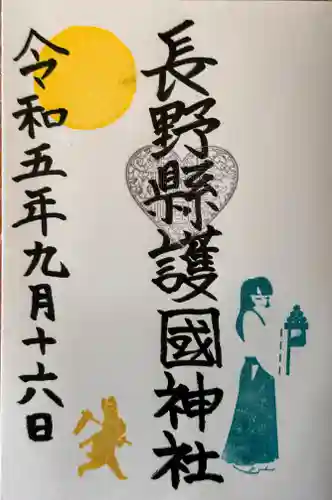 長野縣護國神社
令和五年九月十六日